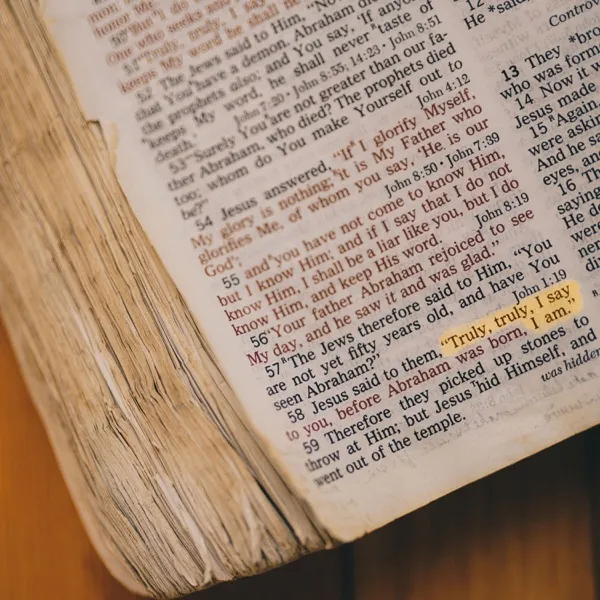 One who seeks and
51 "Truly, truly, I say
keeps My word he shall
52 The Jews said to Him, "Now
that You have a demon. Abraham
the prophets also; and You say, 'If anyone
keeps My word, he shall never taste of
death.' John 7:20 · John 8:55; 14:23 · John 8:51
53 "Surely You are not greater than our fa-
ther Abraham, who died? The prophets died
too; whom do You make Yourself out to
be?" John 4:12
54 Jesus answered, "If I glorify Myself,
My glory is nothing; it is My Father who
glorifies Me, of whom you say, 'He is our
God'; John 8:50 · John 7:39
55 and you have not come to know Him,
but I know Him; and if I say that I do not
know Him, I shall be a liar like you, but I do
know Him, and keep His word. John 8:19
56 "Your father Abraham rejoiced to see
My day, and he saw it and was glad."
57 "The Jews therefore said to Him, "You
are not yet fifty years old, and have You
seen Abraham?" John 1:19
58 Jesus said to them, "Truly, truly, I say
to you, before Abraham was born, I am."
59 Therefore they picked up stones to
throw at Him; but Jesus hid Himself, and
went out of the temple. was hidden
He *said,
Contro
13 They *bro
who was form
14 Now it w
Jesus made
15 "Again,
were askin
And he sa
eyes, and
16 Th
saying
He do
were